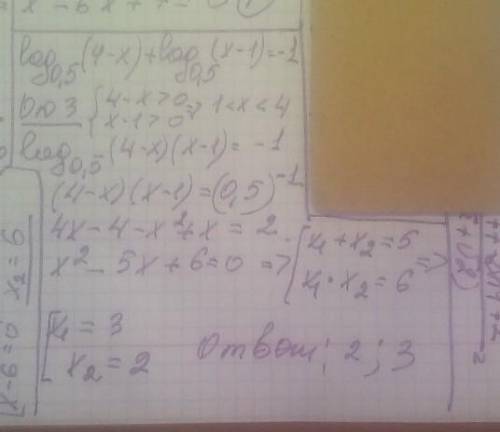 x - 6x + 7 =
log₀,₅(4-x)+log₀,₅(x-1)=-1
ОДЗ { 4-x>0 => 1<x<4
x-1>0
log₀,₅ (4-x)(x-1)= -1
(4-x)(x-1)=(0,5)⁻¹
4x-4-x²+x=2
x²-5x+6=0 => [ x₁+x₂=5 =>
x₁·x₂=6
[ x₁=3
x₂=2
Ответ: 2; 3
(x-6=0 x₂=6